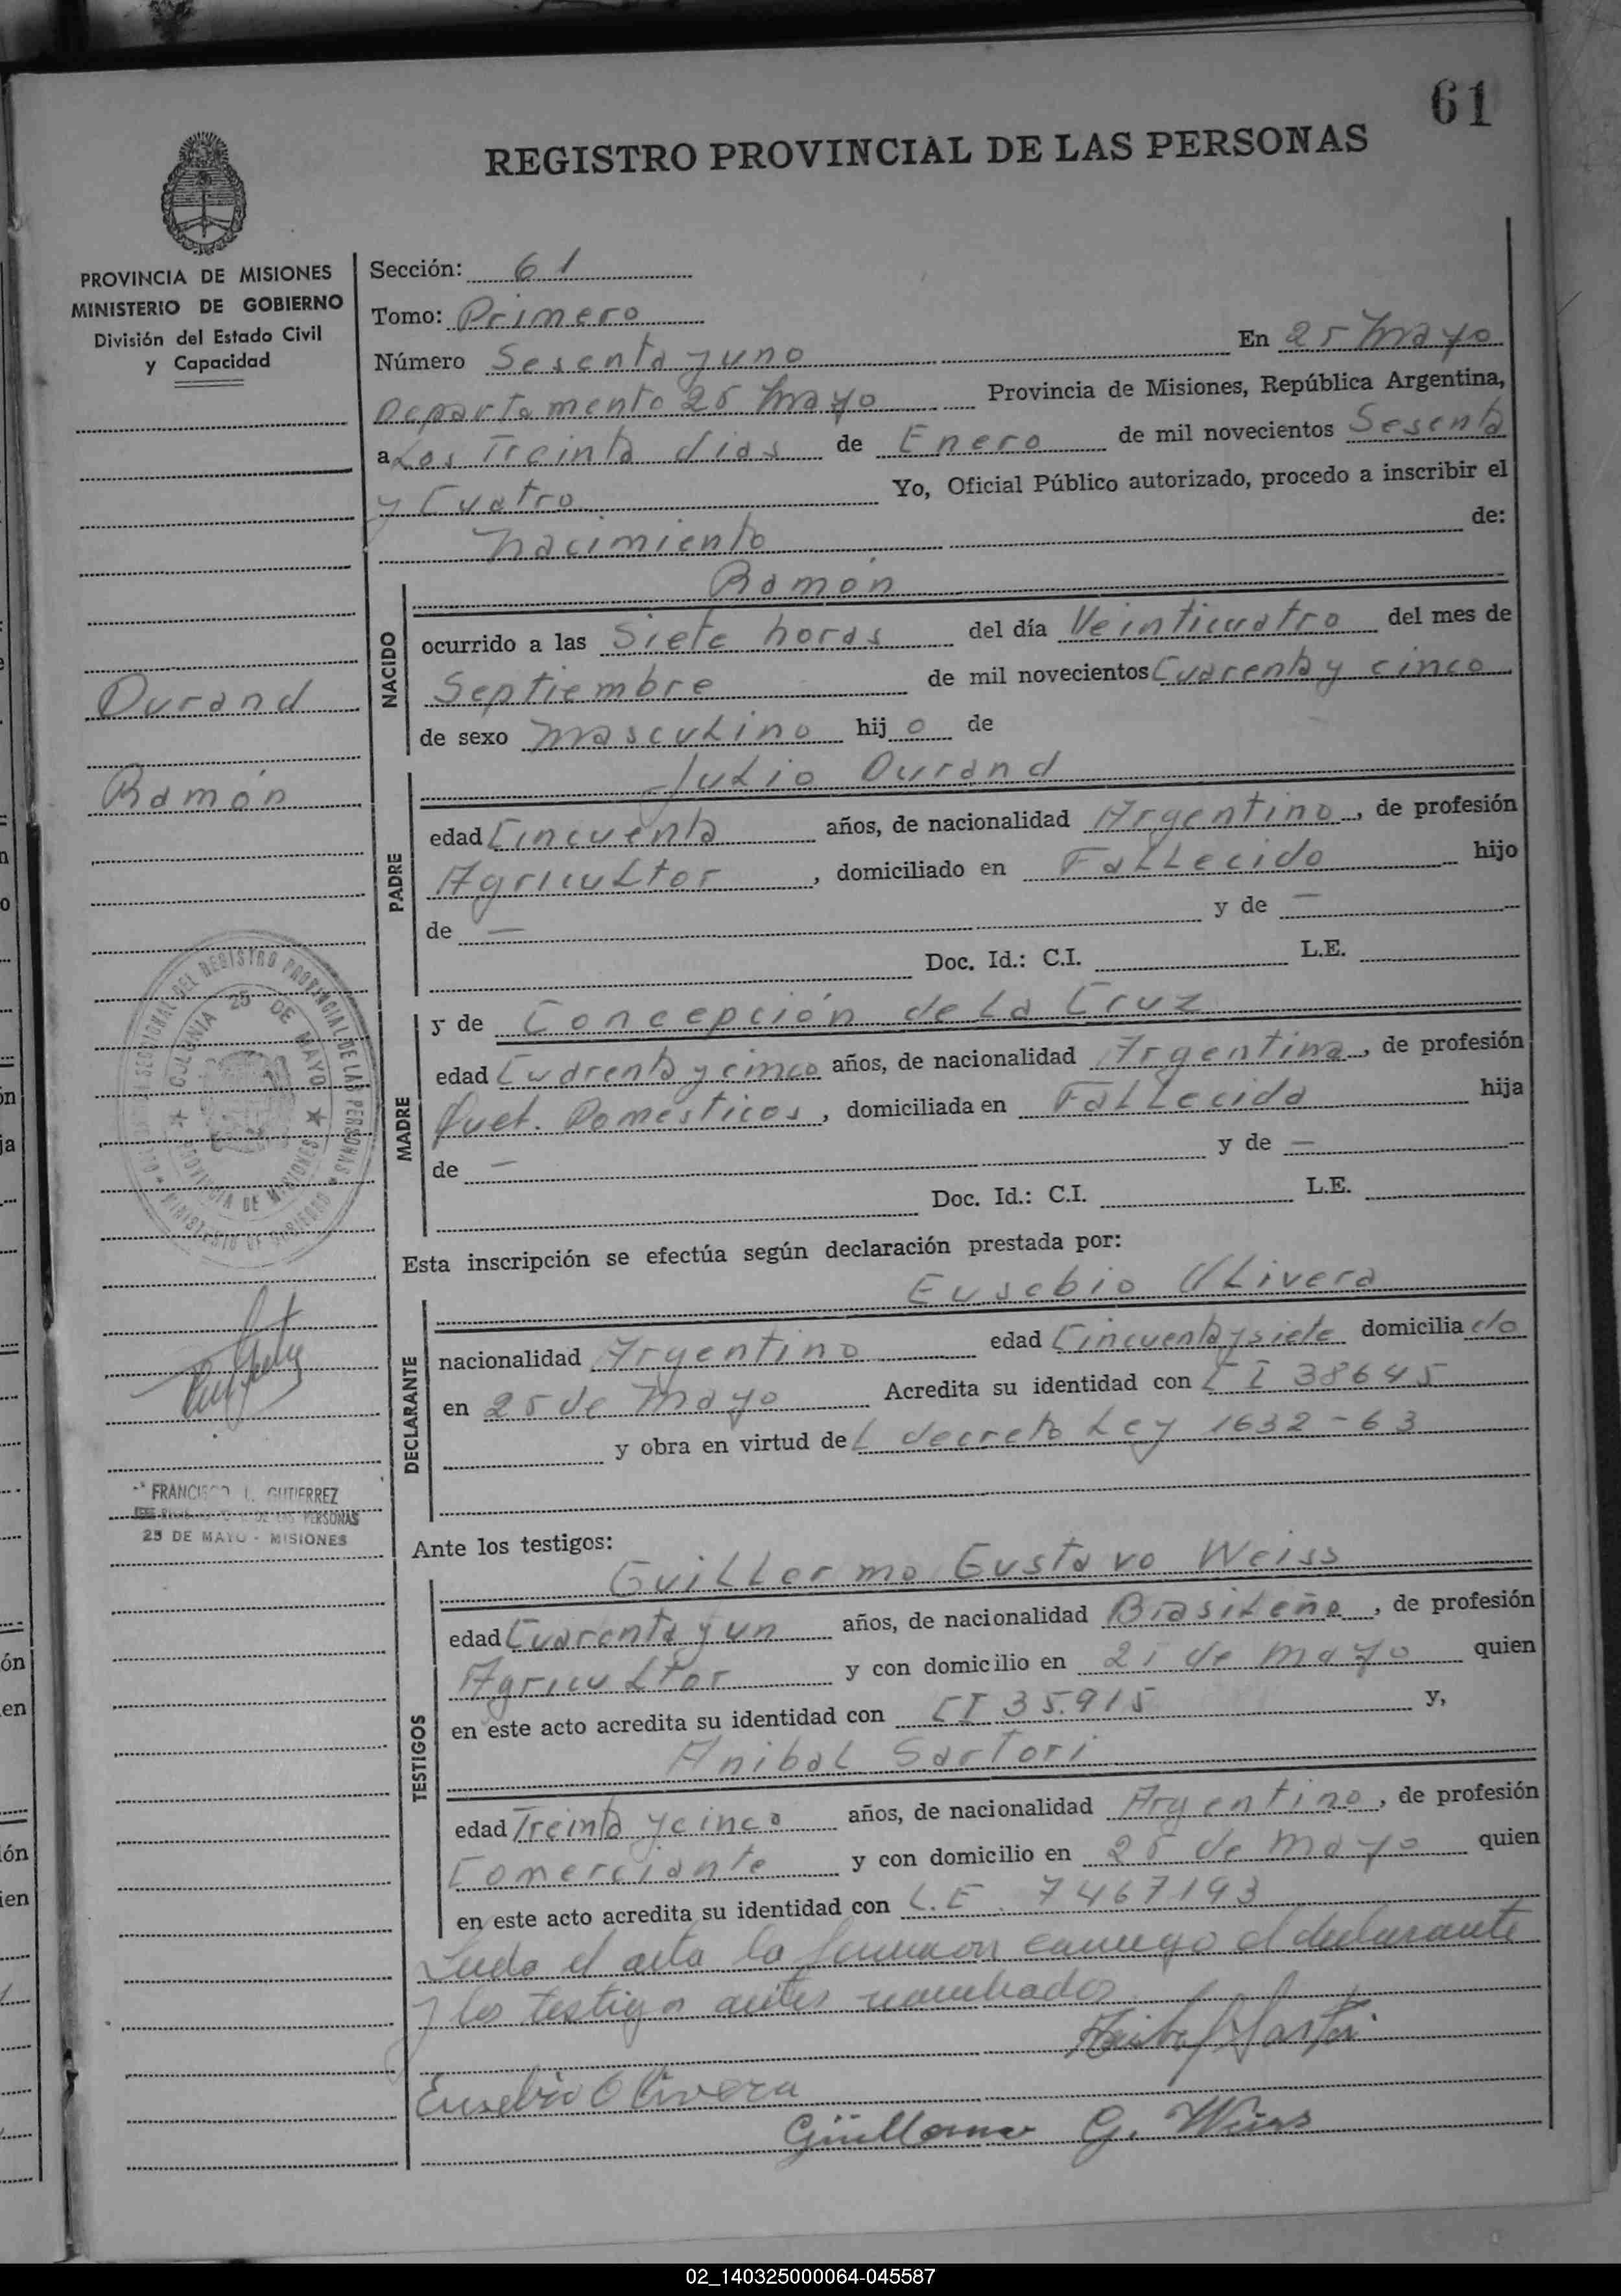 61
REGISTRO PROVINCIAL DE LAS PERSONAS
PROVINCIA DE MISIONES
MINISTERIO DE GOBIERNO
División del Estado Civil
y Capacidad
Durand
Ramón
COLONIA 25 DE MAYO
PROVINCIA DE MISIONES
MINISTERIO DE GOBIERNO
FRANCISCO L. GUTIERREZ
25 DE MAYO - MISIONES
Sección: 61
Tomo: Primero
Número Sesenta y uno En 25 Mayo
Departamento 25 Mayo Provincia de Misiones, República Argentina,
a Los Treinta dias de Enero de mil novecientos Sesenta
y Cuatro Yo, Oficial Público autorizado, procedo a inscribir el
Nacimiento de:
NACIDO
Ramón
ocurrido a las Siete horas del día Veinticuatro del mes de
Septiembre de mil novecientos Cuarenta y cinco
de sexo Masculino hijo de
PADRE
Julio Durand
edad Cincuenta años, de nacionalidad Argentino, de profesión
Agricultor, domiciliado en Fallecido hijo
de — y de —
Doc. Id.: C.I. L.E.
MADRE
y de Concepción de La Cruz
edad Cuarenta y cinco años, de nacionalidad Argentina, de profesión
Quet. Domésticos, domiciliada en Fallecida hija
de — y de —
Doc. Id.: C.I. L.E.
Esta inscripción se efectúa según declaración prestada por:
DECLARANTE
Eusebio Olivera
nacionalidad Argentino edad Cincuenta y siete domiciliado
en 25 de Mayo Acredita su identidad con C I 38645
y obra en virtud del decreto Ley 1632-63
Ante los testigos:
TESTIGOS
Guillermo Gustavo Weiss
edad Cuarenta y un años, de nacionalidad Brasileño, de profesión
Agricultor y con domicilio en 25 de Mayo quien
en este acto acredita su identidad con CI 35.915 y,
Anibal Sartori
edad Treinta y cinco años, de nacionalidad Argentino, de profesión
Comerciante y con domicilio en 25 de Mayo quien
en este acto acredita su identidad con L.E. 7467193
Leida el acta la firmaron conmigo el declarante
y los testigos antes nombrados
Eusebio Olivera
Guillermo G. Weiss
02_140325000064-045587